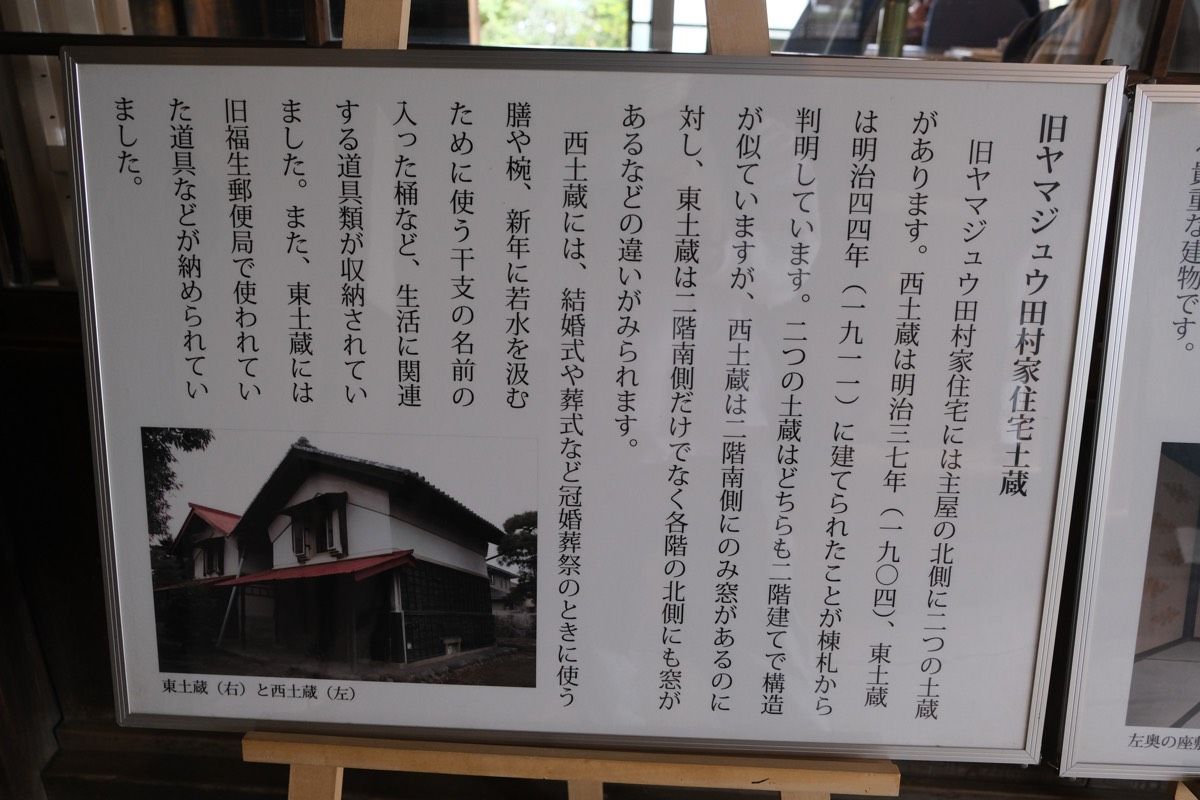 旧ヤマジュウ田村家住宅土蔵
旧ヤマジュウ田村家住宅には主屋の北側に二つの土蔵
があります。西土蔵は明治三七年（一九〇四）、東土蔵
は明治四四年（一九一一）に建てられたことが棟札から
判明しています。二つの土蔵はどちらも二階建てで構造
が似ていますが、西土蔵は二階南側にのみ窓があるのに
対し、東土蔵は二階南側だけでなく各階の北側にも窓が
あるなどの違いがみられます。
西土蔵には、結婚式や葬式など冠婚葬祭のときに使う
膳や椀、新年に若水を汲む
ために使う干支の名前の
入った桶など、生活に関連
する道具類が収納されてい
ました。また、東土蔵には
旧福生郵便局で使われてい
た道具などが納められてい
ました。
東土蔵（右）と西土蔵（左）
貴重な建物です。
左奥の座